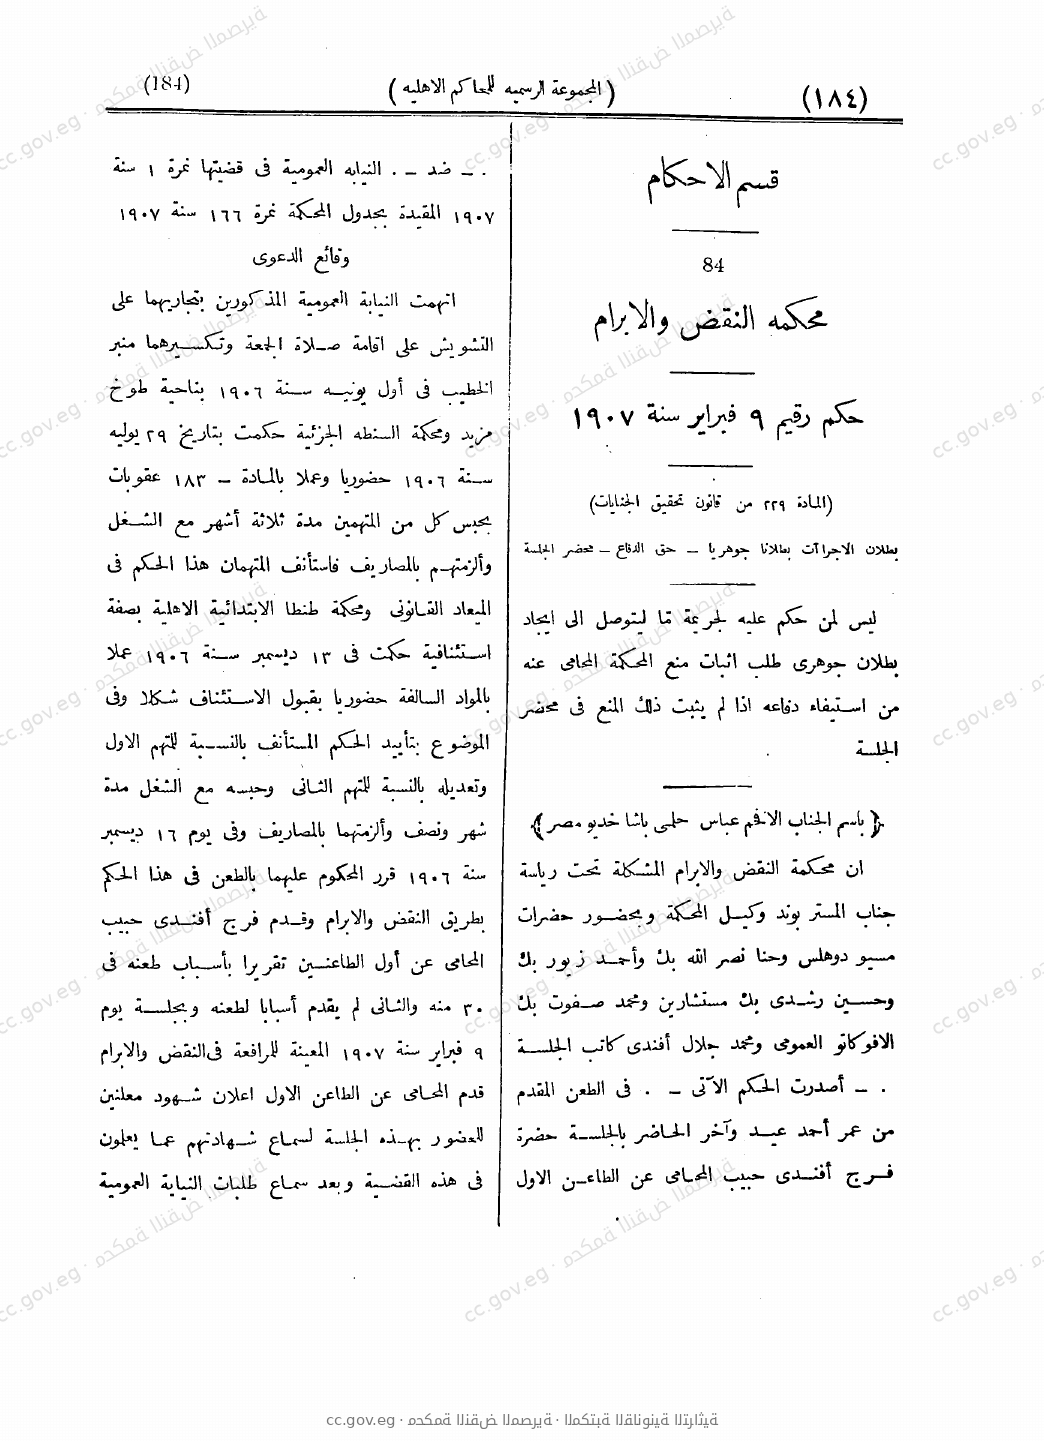 (١٨٤)
(المجموعة الرسميه للمحاكم الاهليه)
(184)
قسم الاحكام
84
محكمه النقض والابرام
حكم رقيم ٩ فبراير سنة ١٩٠٧
(المادة ٢٢٩ من قانون تحقيق الجنايات)
بطلان الاجراآت بطلانا جوهريا – حق الدفاع – محضر الجلسة
ليس لمن حكم عليه لجريمة ما ليتوصل الى ايجاد
بطلان جوهرى طلب اثبات منع المحكمة المحامى عنه
من استيفاء دفاعه اذا لم يثبت ذلك المنع فى محضر
الجلسة
﴿ باسم الجناب الافخم عباس حلمى باشا خديو مصر ﴾
ان محكمة النقض والابرام المشكلة تحت رياسة
جناب المستر بوند وكيل المحكمة وبحضور حضرات
مسيو دوهلس وحنا نصر الله بك وأحمد زيور بك
وحسين رشدى بك مستشارين ومحمد صفوت بك
الافوكاتو العمومى ومحمد جلال أفندى كاتب الجلسة
. – أصدرت الحكم الآتى – . فى الطعن المقدم
من عمر أحمد عيد وآخر الحاضر بالجلسة حضرة
فرج أفندى حبيب المحامى عن الطاعن الاول
. – ضد – . النيابه العمومية فى قضيتها نمرة ١ سنة
١٩٠٧ المقيدة بجدول المحكمة نمرة ١٦٦ سنة ١٩٠٧
وقائع الدعوى
اتهمت النيابة العمومية المذكورين بتجاريهما على
التشويش على اقامة صلاة الجمعة وتكسيرهما منبر
الخطيب فى أول يونيه سنة ١٩٠٦ بناحية طوخ
مزيد ومحكمة السنطه الجزئية حكمت بتاريخ ٢٩ يوليه
سنة ١٩٠٦ حضوريا وعملا بالمادة – ١٨٣ عقوبات
بحبس كل من المتهمين مدة ثلاثة أشهر مع الشغل
وألزمتهم بالمصاريف فاستأنف المتهمان هذا الحكم فى
الميعاد القانونى ومحكمة طنطا الابتدائية الاهلية بصفة
استئنافية حكمت فى ١٣ ديسمبر سنة ١٩٠٦ عملا
بالمواد السالفة حضوريا بقبول الاستئناف شكلا وفى
الموضوع بتأييد الحكم المستأنف بالنسبة للمتهم الاول
وتعديله بالنسبة للمتهم الثانى وحبسه مع الشغل مدة
شهر ونصف وألزمتهما بالمصاريف وفى يوم ١٦ ديسمبر
سنة ١٩٠٦ قرر المحكوم عليهما بالطعن فى هذا الحكم
بطريق النقض والابرام وقدم فرج أفندى حبيب
المحامى عن أول الطاعنين تقريرا بأسباب طعنه فى
٣٠ منه والثانى لم يقدم أسبابا لطعنه وبجلسة يوم
٩ فبراير سنة ١٩٠٧ المعينة للمرافعة فى النقض والابرام
قدم المحامى عن الطاعن الاول اعلان شهود معلنين
للحضور بهذه الجلسة لسماع شهادتهم عما يعلمون
فى هذه القضية وبعد سماع طلبات النيابة العمومية
cc.gov.eg · محكمة النقض المصرية · المكتبة القانونية التراثية